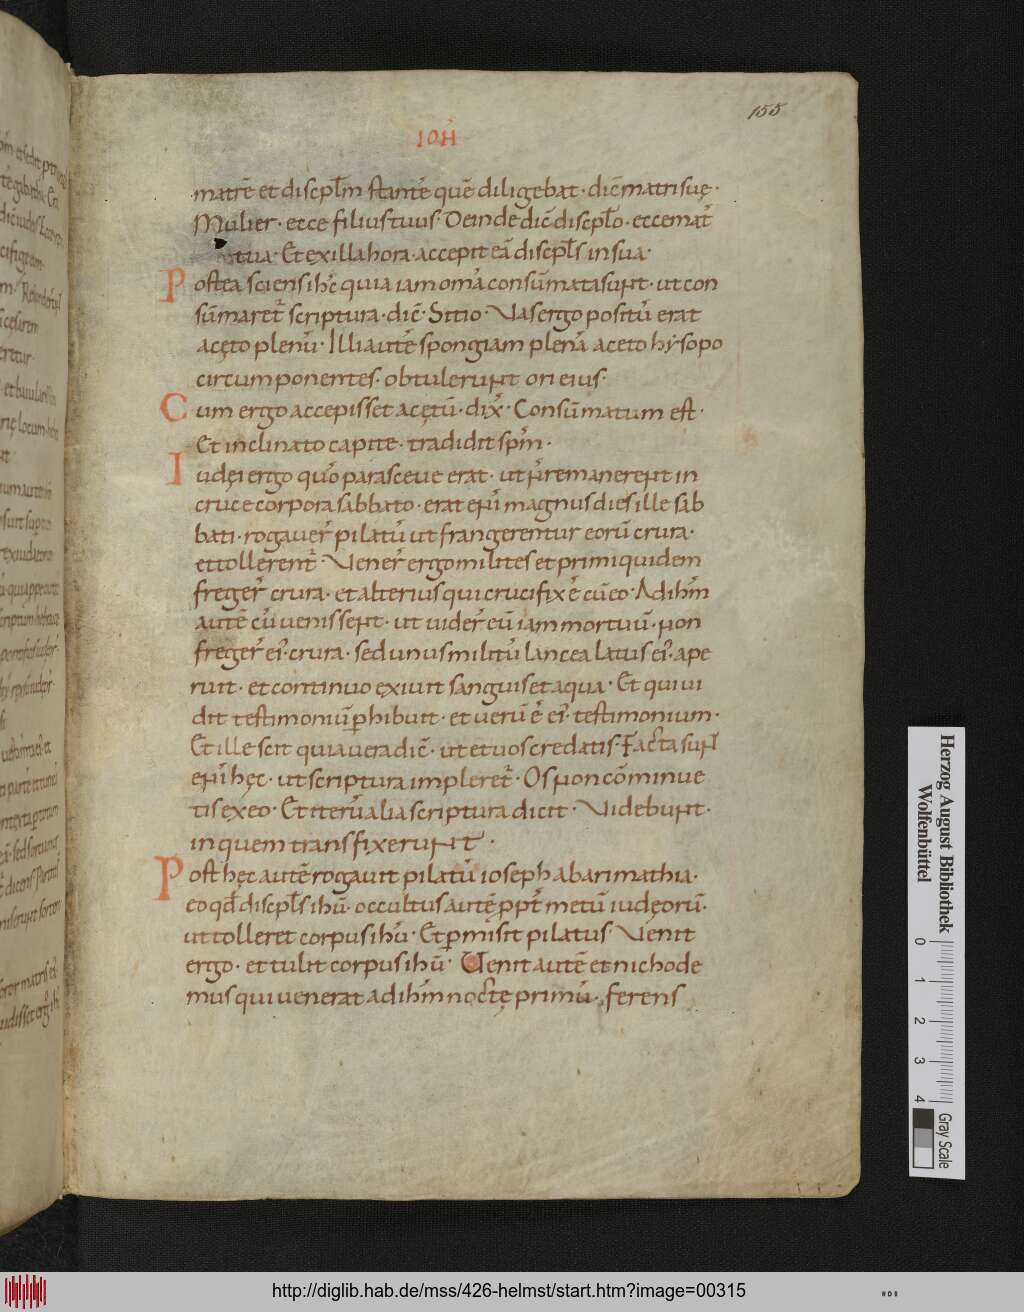 155
IOH̄
matrē et discpl̄m stantē quē diligebat · dic̄ matri suę ·
Mulier · ecce filius tuus · Deinde dic̄ discpl̄o · ecce mat̄
tua · Et ex illa hora · accepit eā discpl̄s in sua ·
Postea sciens ih̄c quia iam om̄a consūmata sunt · ut con
sūmaret̄ scriptura · dic̄ · Sitio · Vas ergo positū erat
acęto plenū · Illi autē spongiam plenā aceto hysopo
circumponentes · obtulerunt ori eius ·
Cum ergo accepisset acętū · dix̄ · Consūmatum est ·
Et inclinato capite · tradidit sp̄m ·
Iudęi ergo qūo parasceue erat · ut n̄ remanerent in
cruce corpora sabbato · erat eni̅ magnus dies ille sab
bati · rogauer̄ pilatū ut frangerentur eorū crura ·
et tollerent̄ · Vener̄ ergo milites et primi quidem
freger̄ crura · et alterius qui crucifix̄ ē cū eo · Ad ih̄m
autē cū uenissent · ut uider̄ eū iam mortuū · non
freger̄ ei᷒ crura · sed unus militū lancea latus ei᷒ ape
ruit · et continuo exiuit sanguis et aqua · Et qui ui
dit testimoniū ꝑhibuit · et uerū ē ei᷒ testimonium ·
Et ille scit quia uera dic̄ · ut et uos credatis · Facta sunt
eni̅ hęc · ut scriptura impleret̄ · Os non cōminue
tis ex eo · Et iterū alia scriptura dicit · Videbunt ·
in quem transfixerunt ·
Post hęc autē rogauit pilatū ioseph ab arimathia ·
eo qđ discpl̄s ih̄u · occultus autē ppt̄ metū iudęorū ·
ut tolleret corpus ih̄u · Et ꝑmisit pilatus · Venit
ergo · et tulit corpus ih̄u · Uenit autē et nichode
mus qui uenerat ad ih̄m nocte primū · ferens
Herzog August Bibliothek
Wolfenbüttel
0 1 2 3 4
Gray Scale
http://diglib.hab.de/mss/426-helmst/start.htm?image=00315